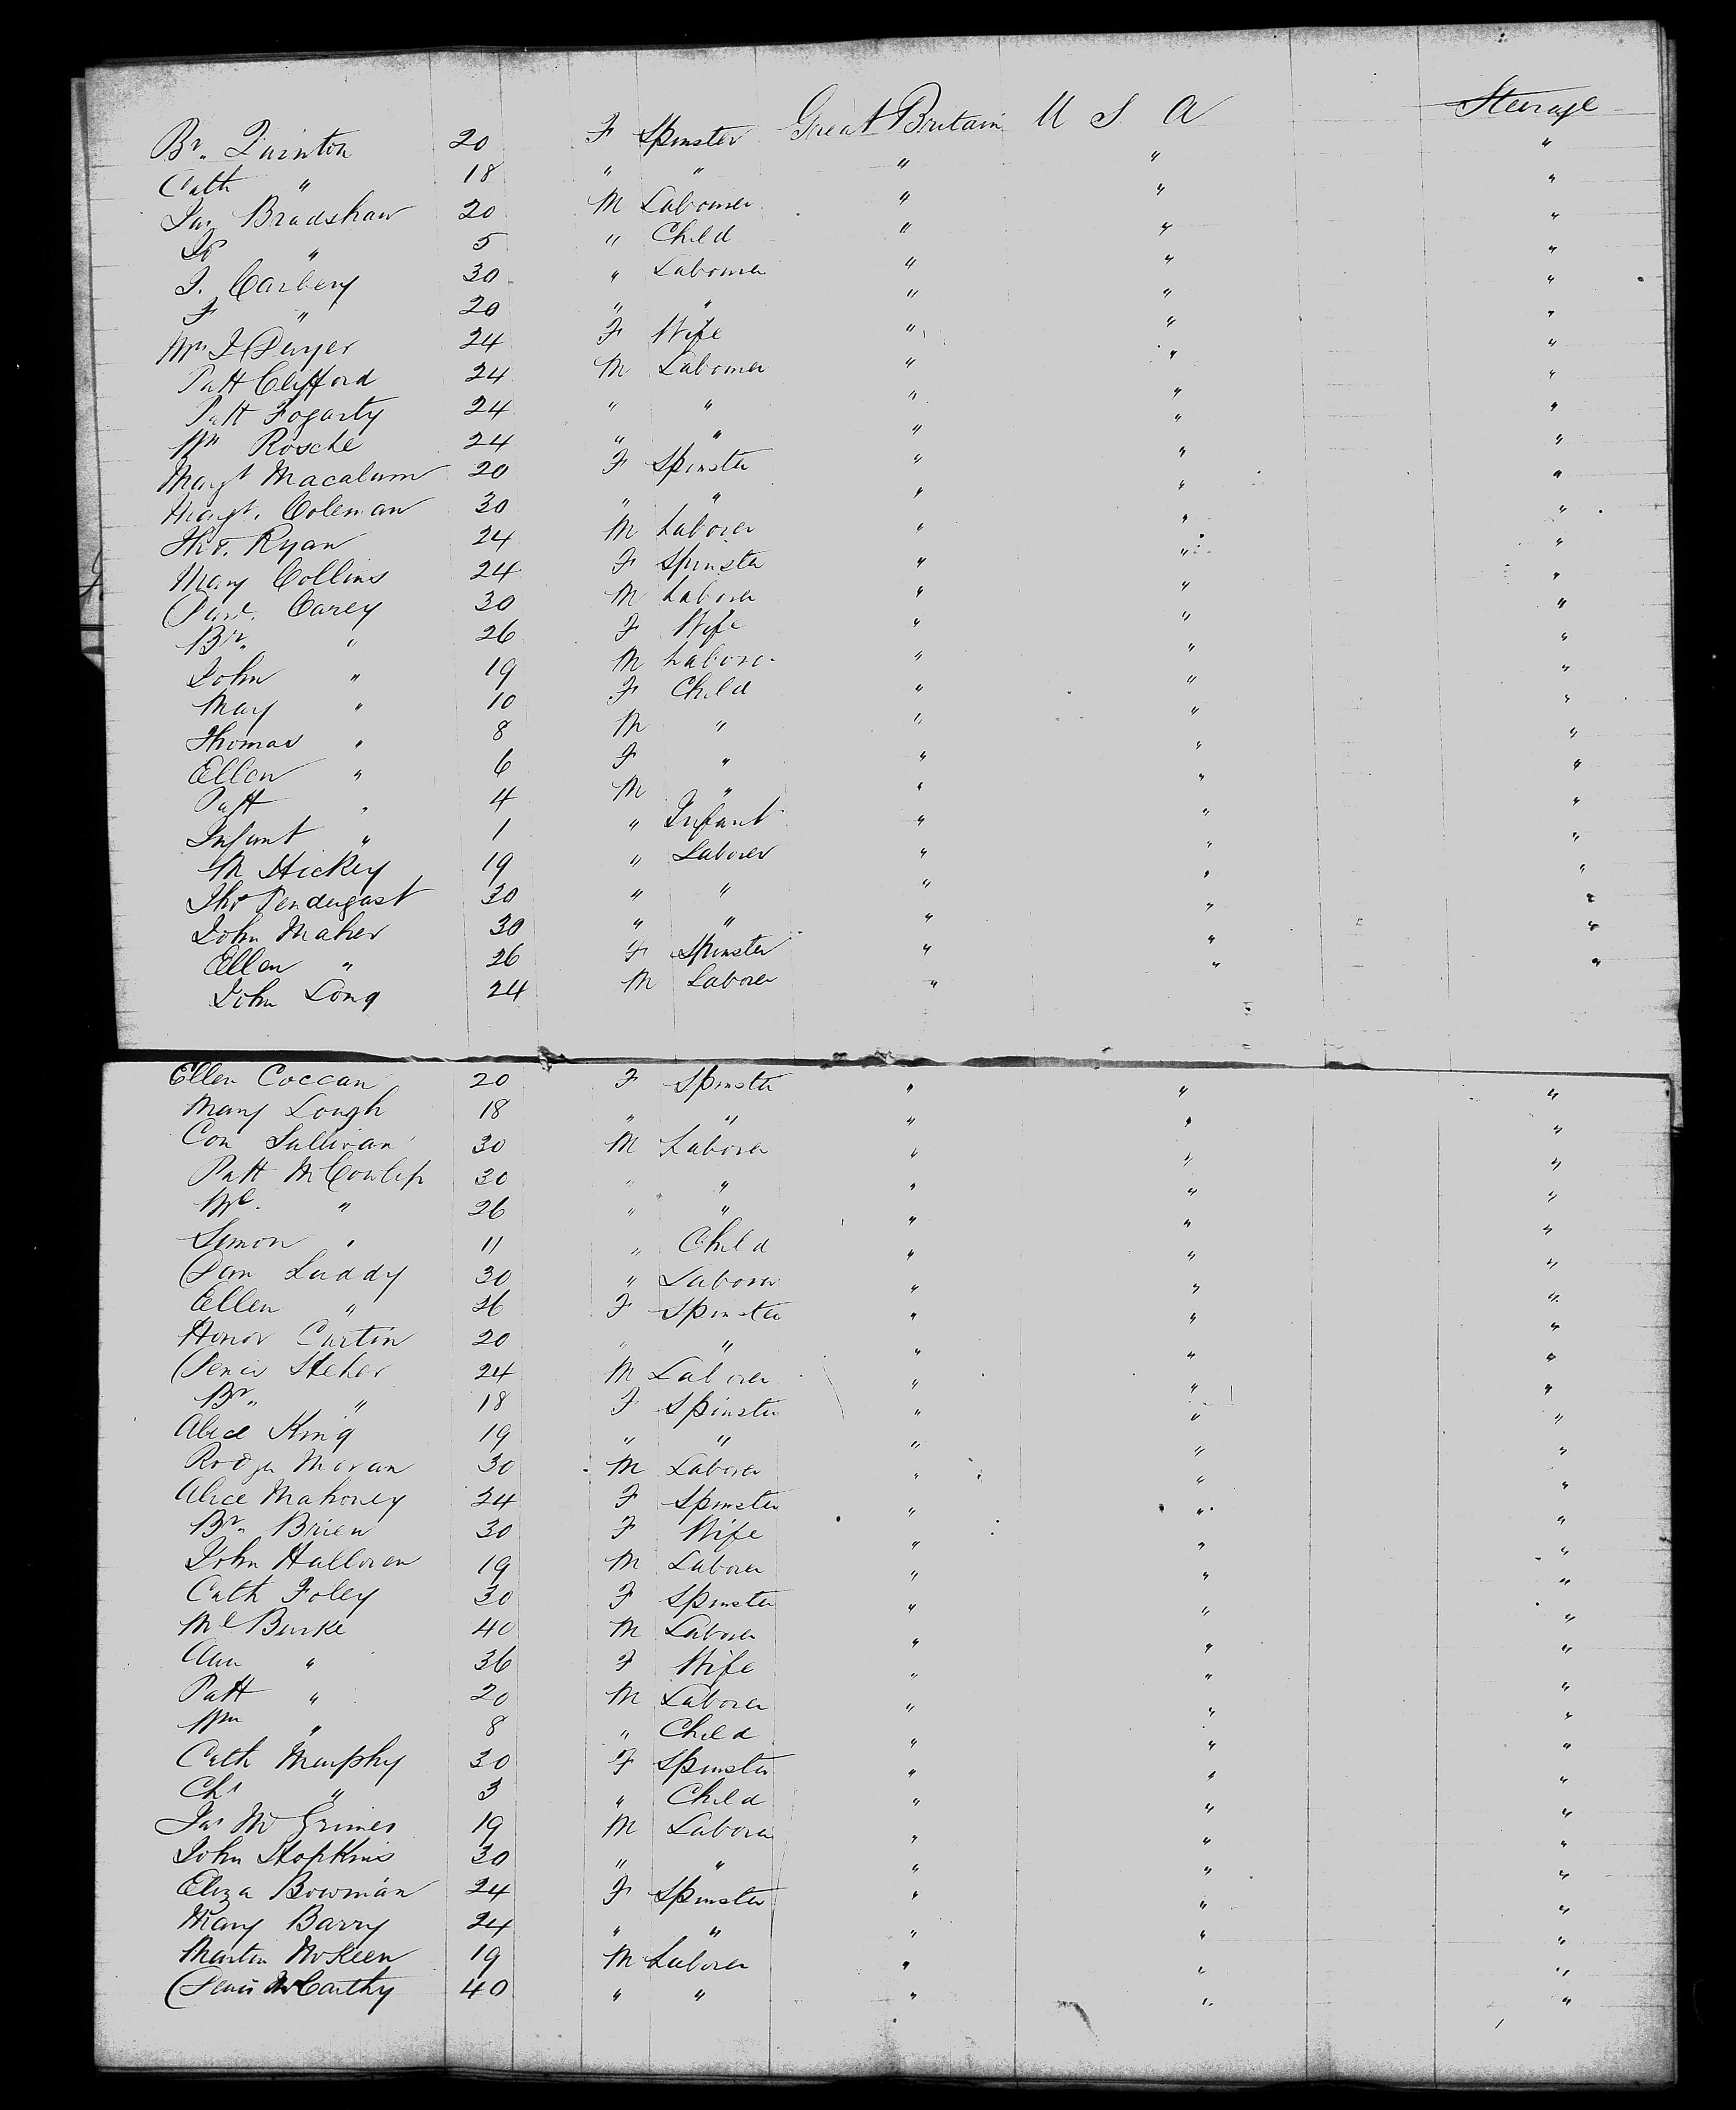 Br. Quinton 20 F Spinster Great Britain U S A Steerage
Cath " 18 " " " " "
Jas Bradshaw 20 M Labourer " " "
Jo " 5 " Child " " "
J. Carbery 30 " Labourer " " "
F " 20 " " " " "
Mrs J Dwyer 24 F Wife " " "
Patt Clifford 24 M Labourer " " "
Patt Fogarty 24 " " " " "
Wm Rosche 24 " " " " "
Margt Macalum 20 F Spinster " " "
Margt. Coleman 30 " " " " "
Tho. Ryan 24 M Laborer " " "
Mary Collins 24 F Spinster " " "
Carey 30 M Laborer " " "
Br. " 26 F Wife " " "
John " 19 M Laborer " " "
Mary " 10 F Child " " "
Thomas " 8 M " " " "
Ellen " 6 F " " " "
Patt " 4 M " " " "
Infant " 1 " Infant " " "
M Hickey 19 " Laborer " " "
Tho Pendergast 30 " " " " "
John Maher 30 " " " " "
Ellen " 26 F Spinster " " "
John Long 24 M Laborer "
Ellen Coccan 20 F Spinster " " "
Mary Lough 18 " " " " "
Con Sullivan 30 M Laborer " " "
Patt 30 " " " " "
Ml. " 26 " " " " "
Simon " 11 " Child " " "
Dan Luddy 30 " Laborer " " "
Ellen " 26 F Spinster " " "
Honor Curtin 20 " " " " "
Denis Heher 24 M Laborer " " "
Br. " 18 F Spinster " " "
Alice King 19 " " " " "
Rodger Moran 30 M Laborer " " "
Alice Mahoney 24 F Spinster " " "
Br. Brien 30 F Wife " " "
John Halloran 19 M Laborer " " "
Cath Foley 30 F Spinster " " "
Ml Burke 40 M Laborer " " "
Ann " 36 F Wife " " "
Patt " 20 M Laborer " " "
Wm " 8 " Child " " "
Cath Murphy 30 F Spinster " " "
Chs " 3 " Child " " "
Jas McGrimes 19 M Laborer " " "
John Hopkins 30 " " " " "
Eliza Bowman 24 F Spinster " " "
Mary Barry 24 " " " " "
Martin McKeen 19 M Laborer " " "
Denis McCarthy 40 " " " " "